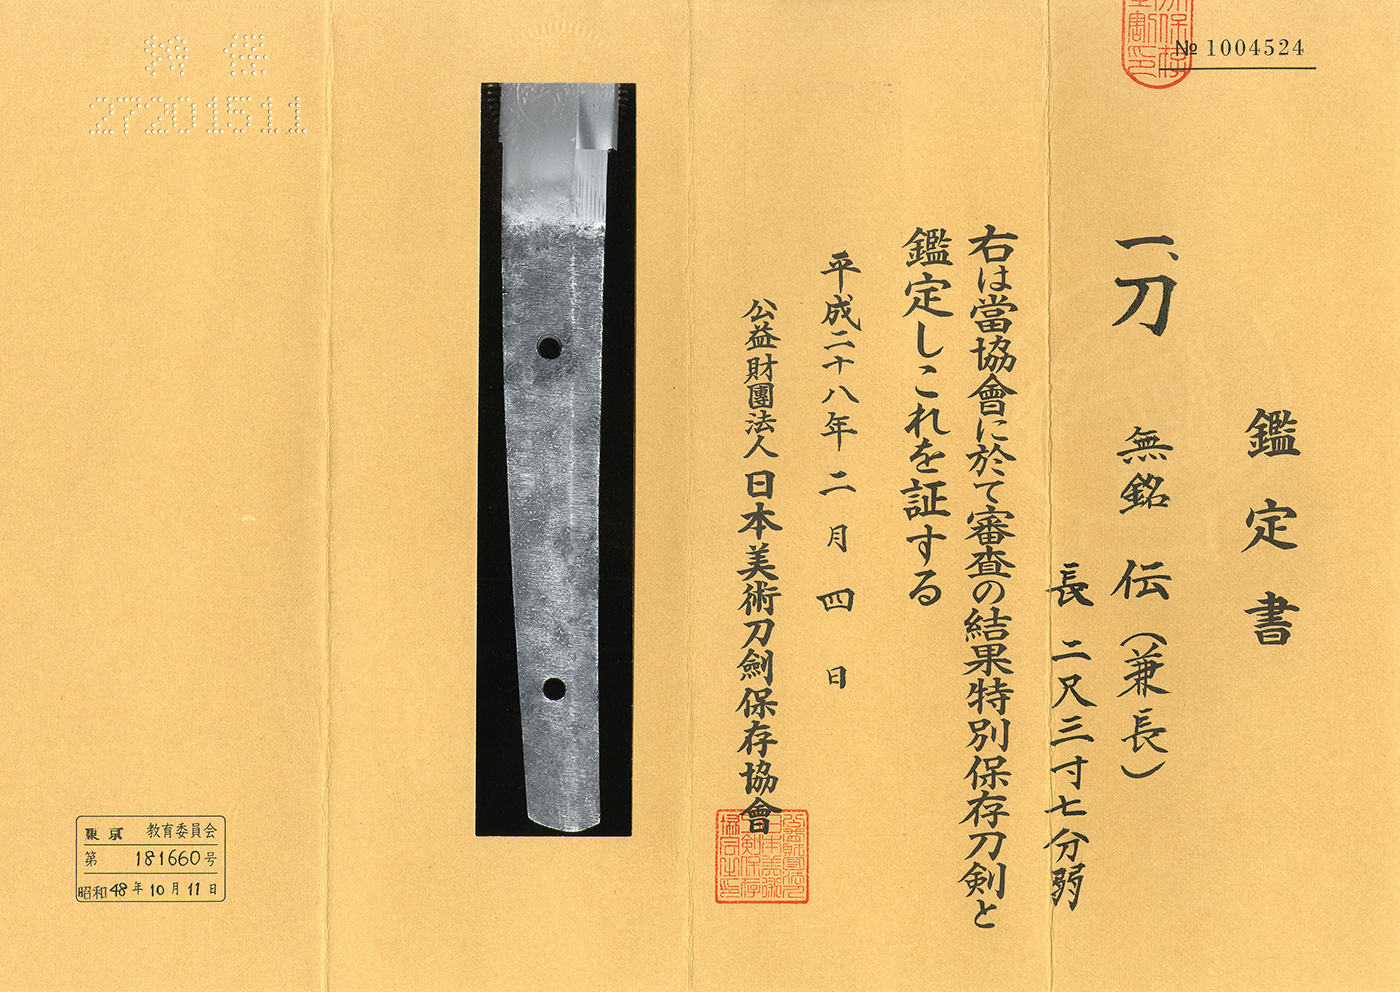 № 1004524
鑑定書
一、刀 無銘 伝(兼長)
長 二尺三寸七分弱
右は當協會に於て審査の結果特別保存刀剣と
鑑定しこれを証する
平成二十八年二月四日
公益財團法人日本美術刀劍保存協會
27201511
東京 教育委員会
第 181660号
昭和48年10月11日